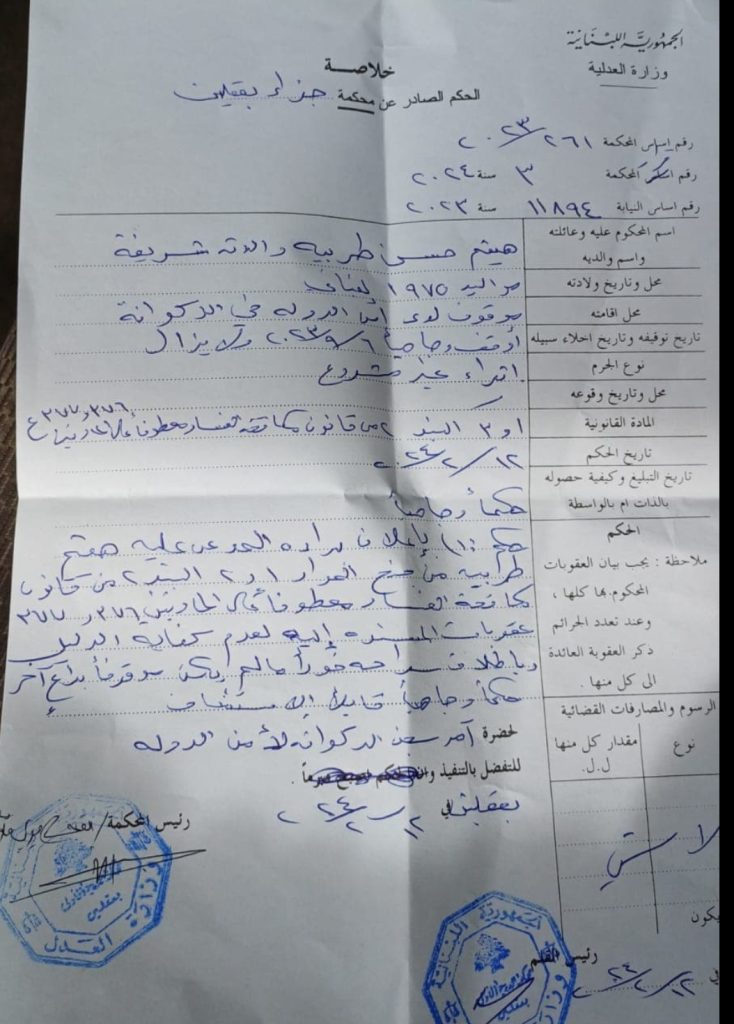 الجمهورية اللبنانية
وزارة العدلية
خلاصة
الحكم الصادر عن محكمة جزاء بعقلين
رقم اساس المحكمة ٢٠٢٣/٢٦١
رقم المحكمة ٣ سنة ٢٠٢٤
رقم اساس النيابة ١١٨٩٤ سنة ٢٠٢٣
اسم المحكوم عليه وعائلته
واسم والديه
هيثم حسن طربيه والدته شريفة
محل وتاريخ ولادته
مواليد ١٩٧٥ لبناني
محل اقامته
موقوف لدى أمن الدولة في الدكوانة
تاريخ توقيفه وتاريخ اخلاء سبيله
أوقف وجاهياً ٢٠٢٣/٩/٦ ولا يزال
نوع الجرم
اثراء غير مشروع
محل وتاريخ وقوعه
المادة القانونية
من قانون مكافحة الفساد معطوفاً على المادتين ٣٧٦ و ٣٧٧ ع
تاريخ الحكم
٢٠٢٤/٢/١٢
تاريخ التبليغ وكيفية حصوله
بالذات ام بالواسطة
حكماً وجاهياً
الحكم
ملاحظة : يجب بيان العقوبات
المحكوم بها كلها ،
وعند تعدد الجرائم
ذكر العقوبة العائدة
الى كل منها .
حكم : ١) بإعلان براءة المدعى عليه هيثم
طربيه من جنح المواد ١ و ٢ البند ٢ من قانون
مكافحة الفساد معطوفاً على المادتين ٣٧٦ و ٣٧٧
عقوبات المسنده إليه لعدم كفاية الدليل
وباطلاق سراحه فوراً ما لم يكن موقوفاً بداعٍ آخر
حكماً وجاهياً قابلاً للإستئناف
الرسوم والمصارفات القضائية
نوع
مقدار كل منها
ل.ل.
لا شي
لحضرة آمر سجن الدكوانه لأمن الدوله
للتفضل بالتنفيذ
بعقلين في ٢٠٢٤/٢/١٢
رئيس المحكمة
رئيس القلم
في ٢٠٢٤/٢/١٢
الجمهورية اللبنانية
وزارة العدل
بعقلين